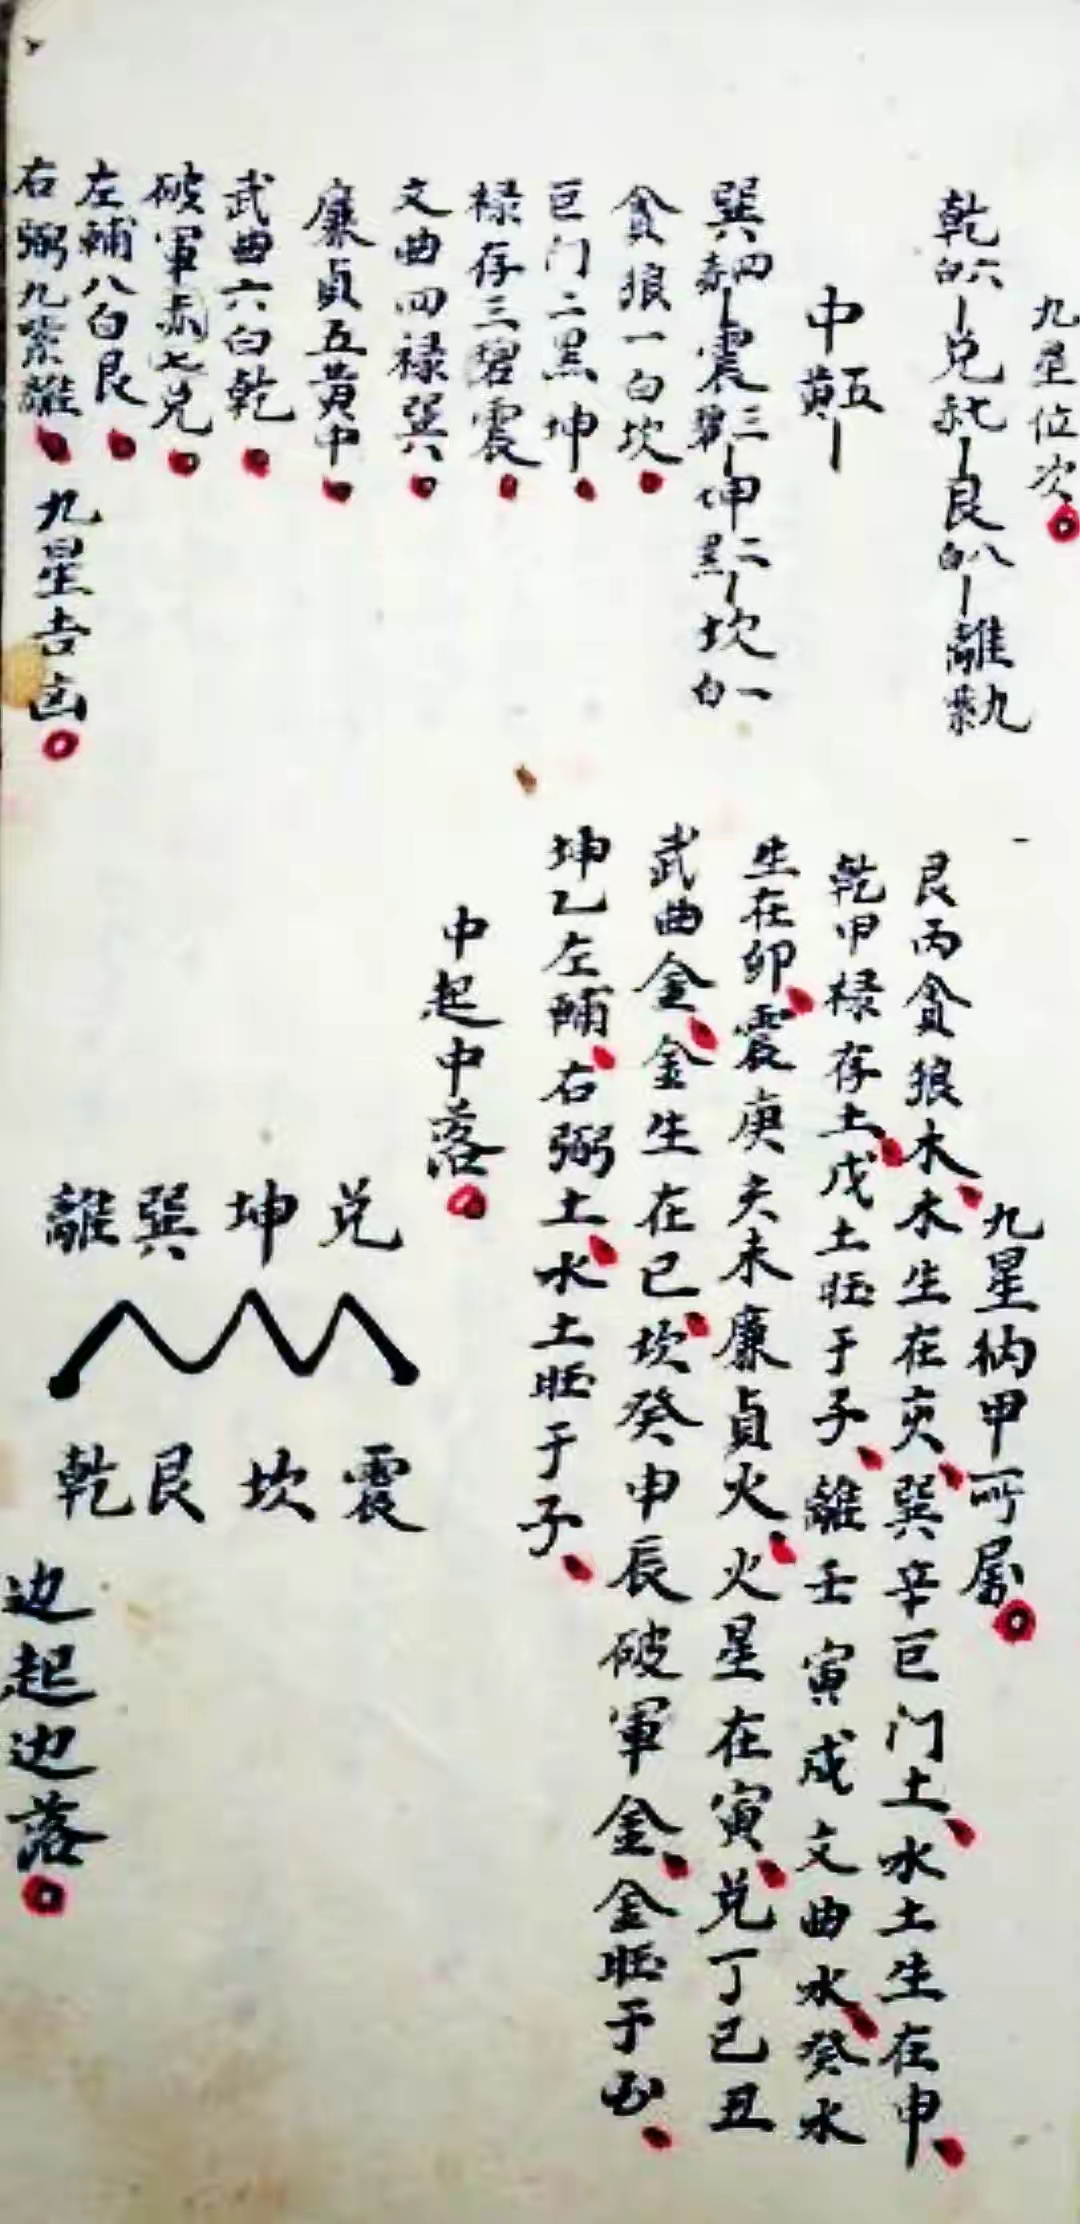 九星位次
乾六白—兌七赤—艮八白—離九紫
中五黃—
巽四—震三碧—坤二黑—坎一白
貪狼一白坎
巨门二黑坤
禄存三碧震
文曲四禄巽
廉貞五黃中
武曲六白乾
破軍赤七兌
左輔八白艮
右弼九紫離
九星吉凶
九星纳甲所屬
艮丙貪狼木木生在亥巽辛巨门土水土生在申
乾甲禄存土戊土旺于子離壬寅戌文曲水癸水
生在卯震庚亥未廉貞火火星在寅兌丁巳丑
武曲金金生在巳坎癸申辰破軍金金旺于酉
坤乙左輔右弼土水土旺于子
中起中落
離巽坤兌
乾艮坎震
边起边落